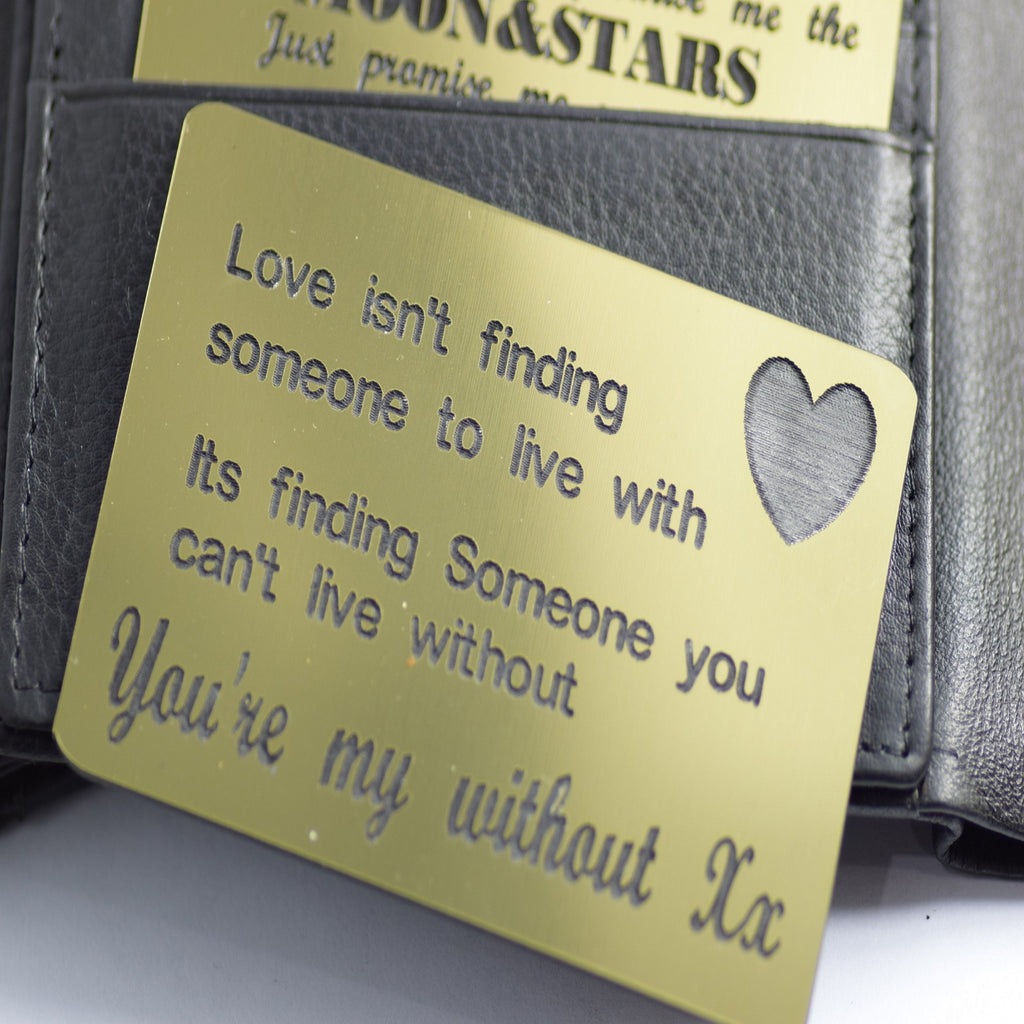 me the
MOON&STARS
Just promise me
Love isn't finding
someone to live with
Its finding Someone you
can't live without
You're my without Xx